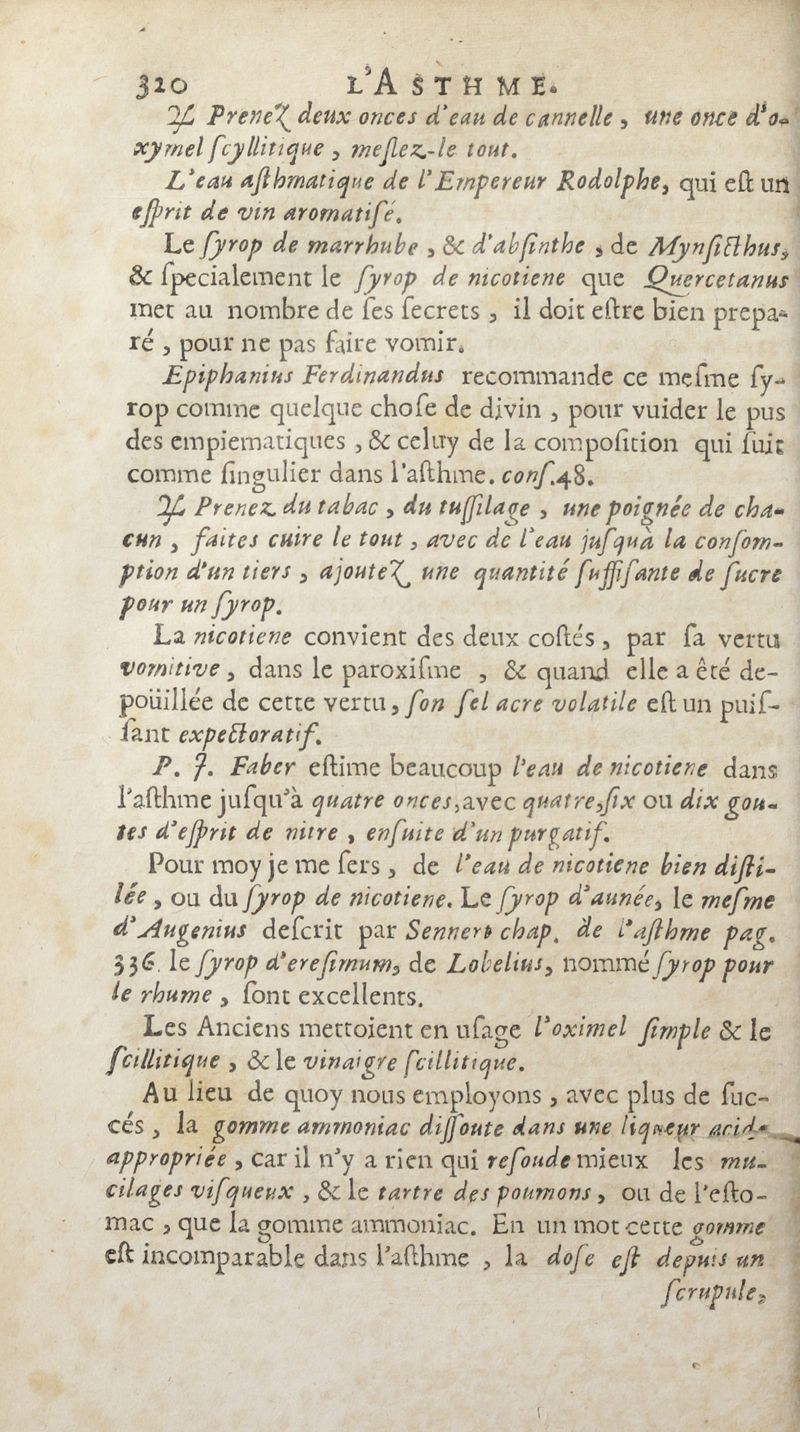 320 L'ASTHME.
℞ Prenez deux onces d'eau de cannelle, une once d'o-
xymel ſcyllitique, meſlez-le tout.
L'eau aſthmatique de l'Empereur Rodolphe, qui eſt un
eſprit de vin aromatiſé.
Le ſyrop de marrhube, & d'abſinthe, de Mynſicthus,
& ſpecialement le ſyrop de nicotiene que Quercetanus
met au nombre de ſes ſecrets, il doit eſtre bien prepa-
ré, pour ne pas faire vomir.
Epiphanius Ferdinandus recommande ce meſme ſy-
rop comme quelque choſe de divin, pour vuider le pus
des empiematiques, & celuy de la compoſition qui ſuit
comme ſingulier dans l'aſthme. conſ.48.
℞ Prenez du tabac, du tuſſilage, une poignée de cha-
cun, faites cuire le tout, avec de l'eau juſqu'à la conſom-
ption d'un tiers, ajoutez une quantité ſuffiſante de ſucre
pour un ſyrop.
La nicotiene convient des deux coſtés, par ſa vertu
vomitive, dans le paroxiſme, & quand elle a été dé-
poüillée de cette vertu, ſon ſel acre volatile eſt un puiſ-
ſant expectoratif.
P. J. Faber eſtime beaucoup l'eau de nicotiene dans
l'aſthme juſqu'à quatre onces, avec quatre, ſix ou dix gou-
tes d'eſprit de nitre, enſuite d'un purgatif.
Pour moy je me ſers, de l'eau de nicotiene bien diſti-
lée, ou du ſyrop de nicotiene. Le ſyrop d'aunée, le meſme
d'Augenius deſcrit par Sennert chap. de l'aſthme pag.
336. le ſyrop d'ereſimum, de Lobelius, nommé ſyrop pour
le rhume, ſont excellents.
Les Anciens mettoient en uſage l'oximel ſimple & le
ſcillitique, & le vinaigre ſcillitique.
Au lieu de quoy nous employons, avec plus de ſuc-
cés, la gomme ammoniac diſſoute dans une liqueur acide
appropriée, car il n'y a rien qui reſoude mieux les mu-
cilages viſqueux, & le tartre des poumons, ou de l'eſto-
mac, que la gomme ammoniac. En un mot cette gomme
eſt incomparable dans l'aſthme, la doſe eſt depuis un
ſcrupule,